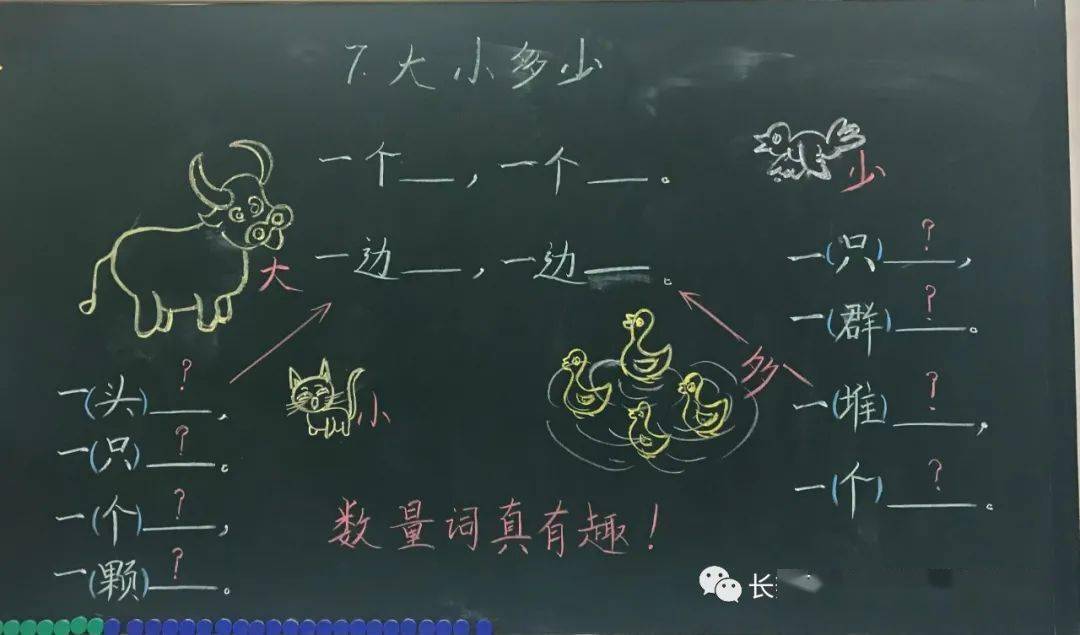 7.大小多少
一个__，一个__。
一边__，一边__。
大
小
一(头)__?__，
一(只)__?__。
一(个)__?__，
一(颗)__?__。
少
多
一(只)__?__，
一(群)__?__。
一(堆)__?__，
一(个)__?__。
数量词真有趣！
长